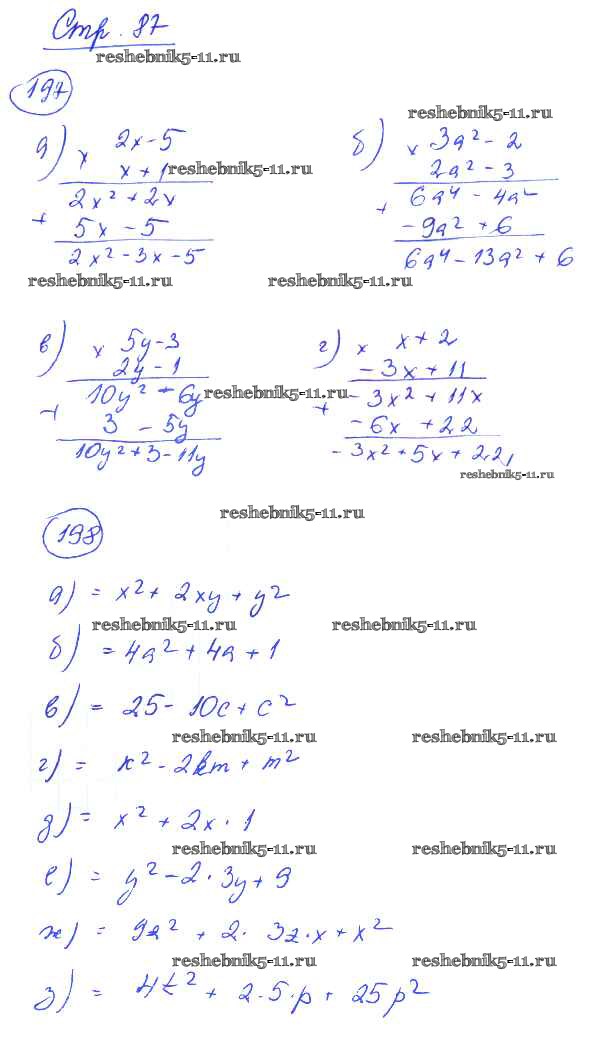 Стр. 87
reshebnik5-11.ru
197
reshebnik5-11.ru
а) × 2x - 5
x + 1 reshebnik5-11.ru
2x² + 2x
+ 5x - 5
2x² - 3x - 5
б) × 3a² - 2
2a² - 3
+ 6a⁴ - 4a²
- 9a² + 6
6a⁴ - 13a² + 6
reshebnik5-11.ru reshebnik5-11.ru
в) × 5y - 3
2y - 1
+ 10y² - 6y reshebnik5-11.ru
3 - 5y
10y² + 3 - 11y
г) × x + 2
- 3x + 11
+ - 3x² + 11x
- 6x + 22
- 3x² + 5x + 22
reshebnik5-11.ru
reshebnik5-11.ru
198
а) = x² + 2xy + y²
reshebnik5-11.ru reshebnik5-11.ru
б) = 4a² + 4a + 1
в) = 25 - 10c + c²
reshebnik5-11.ru reshebnik5-11.ru
г) = k² - 2km + m²
д) = x² + 2x · 1
reshebnik5-11.ru reshebnik5-11.ru
е) = y² - 2 · 3y + 9
ж) = 9z² + 2 · 3z · x + x²
reshebnik5-11.ru reshebnik5-11.ru
з) = 4t² + 2 · 5 · p + 25p²